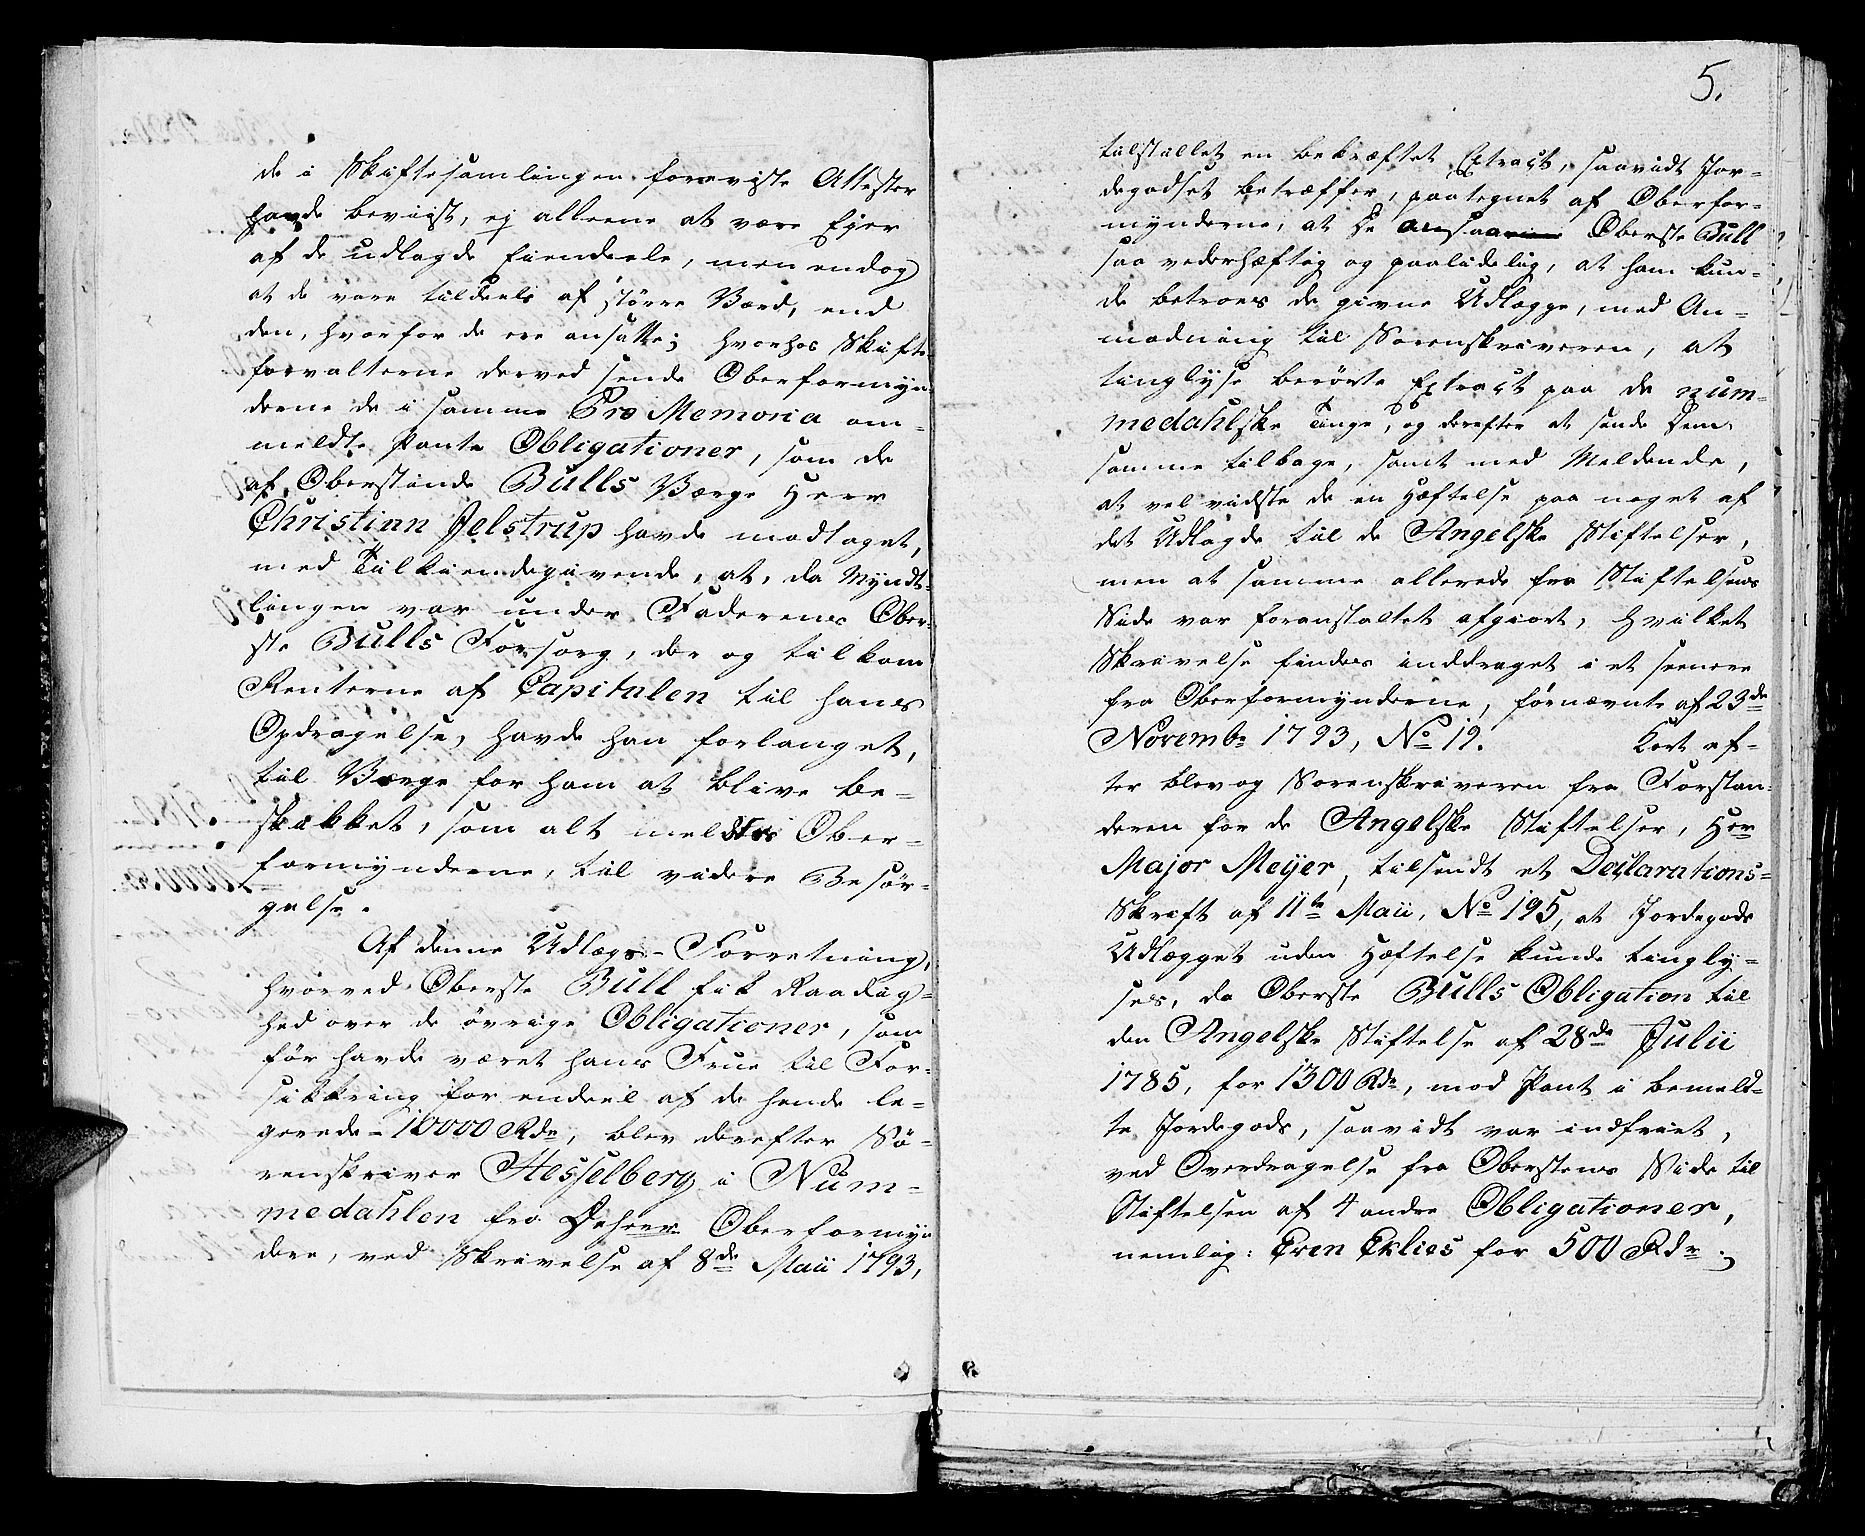 de i Skiftesamlingen foreviste Attester
havde beviist, ej alleene at være Ejer
af de udlagde Eiendeele, men endog
at de vare tildeels af større Værd, end
den, hvorfor de ere ansatte; hvorhos Skifte
forvalterne derved sende Oberformyn
derne de i samme Pro Memoria om-
meldte Pante Obligationer, som de
af Oberstinde Bulls Værge Herr
Christian Jelstrup havde modtaget,
med Tilkiendegivende, at, da Myndt-
lingen var under Faderens Ober-
ste Bulls Forsorg, der og tilkom
Renterne af Capitalen til hans
Opdragelse, havde han forlanget,
til Værge for ham at blive be-
skikket, som alt meldtes Ober-
formynderne, til videre Besør-
gelse.
Af denne Udlægs-Forretning,
hvorved Oberste Bull fik Raadig-
hed over de øvrige Obligationer, som
før havde været hans Frue til For-
sikkring for endeel af de hende le-
gerede 10000 Rdr, blev derefter So-
renskriver Hesselberg i Num-
medahlen fra Deherrer Oberformyn
dere, ved Skrivelse af 8de Maii 1793,
5.
tilstillet en bekræftet Extract, saavidt Jor-
degodset betræffer, paategnet af Oberfor-
mynderne, at de ansaae Oberste Bull
saa vederhæftig og paalidelig, at ham kun-
de betroes de givne Udlægge, med An-
modning til Sorenskriveren, at
tinglyse berørte Extract paa de num-
medahlske Tinge, og derefter at sende dem
samme tilbage, samt med Meldende,
at vel vidste de en Hæftelse paa noget af
det Udlagde til de Angelske Stiftelser,
men at samme allerede fra Stiftelsens
Side var foranstaltet afgiort, hvilket
Skrivelse findes inddraget i et seenere
fra Oberformynderne, førnævnte af 23de
Novembr 1793, No 19. Kort ef-
ter blev og Sorenskriveren fra Forstan-
deren for de Angelske Stiftelser, Herr
Major Meyer, tilsendt et Declarations-
Skrift af 11te Maii, No 195, at Jordegods
Udlægget uden Hæftelse kunde tingly-
ses, da Oberste Bulls Obligation til
den Angelske Stiftelse af 28de Julii
1785, for 1300 Rdr, mod Pant i bemeld-
te Jordegods, saavidt var indfriet,
ved Overdragelse fra Oberstens Side til
Stiftelsen af 4 andre Obligationer,
nemlig: Even Eklies for 500 Rdr.;